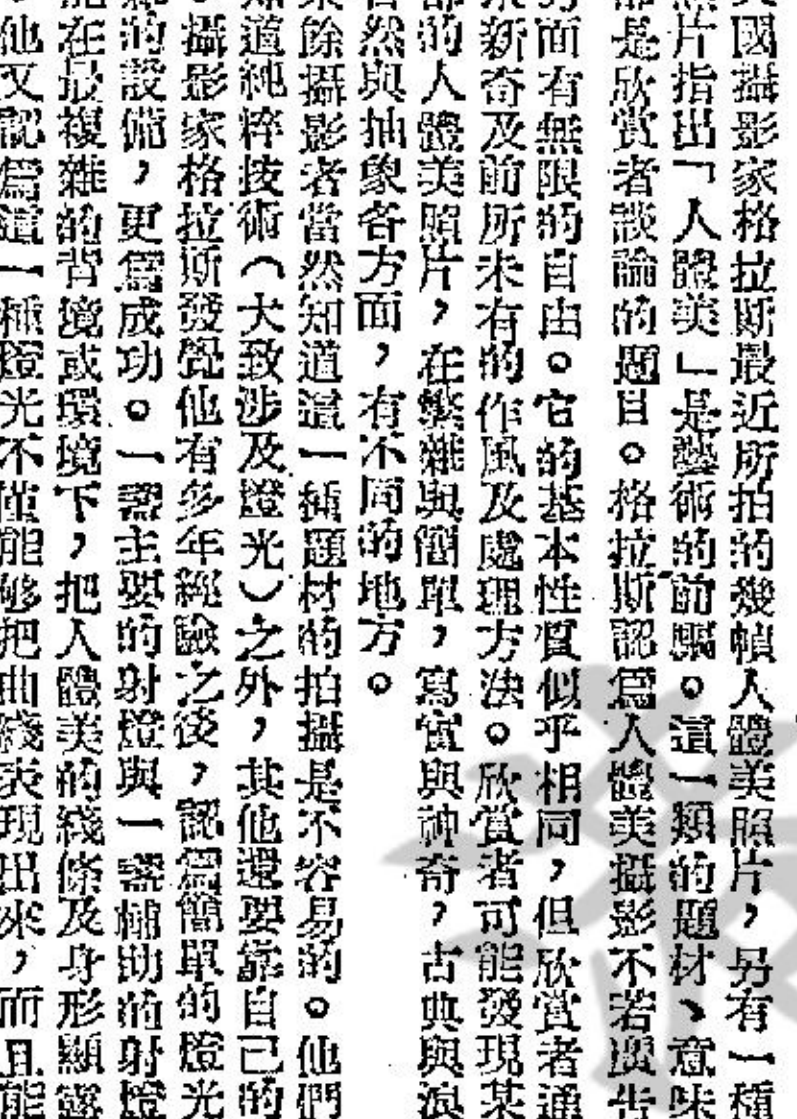 國攝影家格拉斯最近所拍的幾幀人體美照片，另有一種
片指出「人體美」是藝術的前驅。這一類的題材、意味
是欣賞者談論的題目。格拉斯認爲人體美攝影不若廣告
面有無限的自由。它的基本性質似乎相同，但欣賞者通
新奇及前所未有的作風及處理方法。欣賞者可能發現某
的人體美照片，在繁雜與簡單，寫實與神奇，古典與浪
然與抽象各方面，有不同的地方。
餘攝影者當然知道這一種題材的拍攝是不容易的。他們
道純粹技術（大致涉及燈光）之外，其他還要靠自己的
攝影家格拉斯發覺他有多年經驗之後，認爲簡單的燈光
的設備，更爲成功。一盞主要的射燈與一盞補助的射燈
在最複雜的背境或環境下，把人體美的綫條及身形顯露
他又認爲這一種燈光不僅能够把曲綫表現出來，而且能